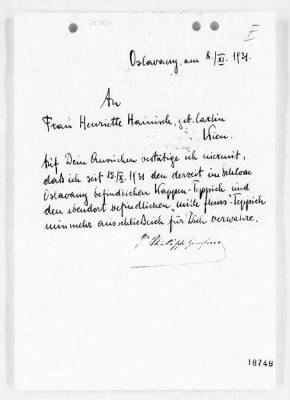 E
Oslavany, am 8./XI. 1931.
An
Frau Henriette Hainisch, geb. Carlin
Wien.
Auf Dein Ansuchen bestätige ich hiermit,
daß ich seit 15/X. 1931 den derzeit im Schlosse
Oslavany befindlichen Wappen-Teppich und
den ebendort befindlichen "mille fleurs"-Teppich
nunmehr ausschließlich für Dich verwahre.
Philipp Gomperz
18748